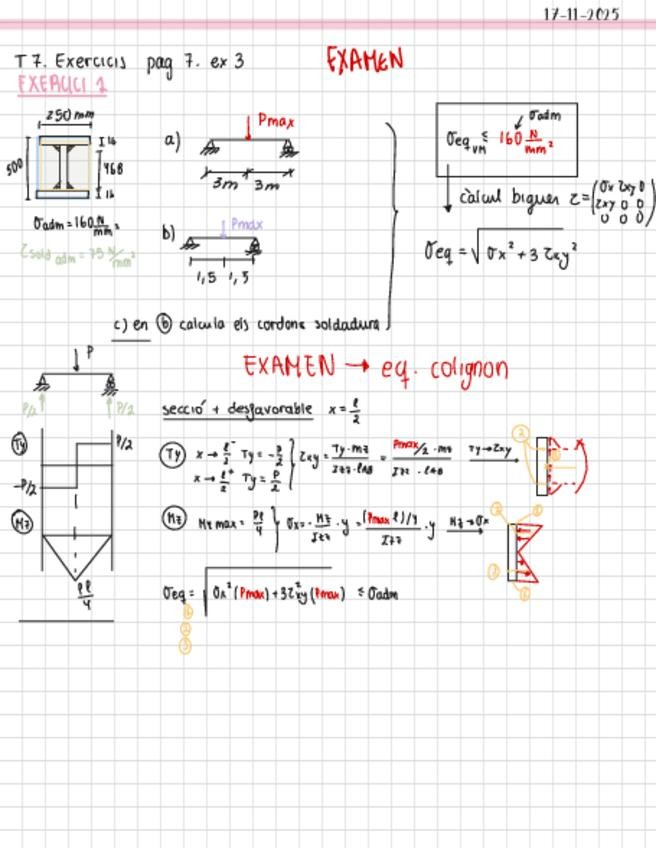 17-11-2025
T7. Exercicis pag 7. ex 3 EXAMEN
EXERCICI 1
250 mm
500
16
468
16
σadm = 160 N/mm²
τsold adm = 75 N/mm²
a) Pmax
3m 3m
b) Pmax
1,5 1,5
c) en b calcula els cordons soldadura
σadm
σeq VM ≤ 160 N/mm²
càlcul bigues τ = (σx τxy 0
τxy 0 0
0 0 0)
σeq = √σx² + 3τxy²
EXAMEN → eq. colignon
P
P/2 P/2
secció + desfavorable x = l/2
Ty
P/2
-P/2
Ty x → l/2⁻ Ty = -P/2
x → l/2⁺ Ty = P/2
τxy = Ty·mz / Izz·eAB = Pmax/2·mz / Izz·eAB Ty → τxy
Mz
Pl/4
Mz Mz max = Pl/4 } σx = -Mz/Izz · y = (Pmax l)/4 / Izz · y Mz → σx
σeq = √σx²(Pmax) + 3τ²xy(Pmax) ≤ σadm
1
2
3